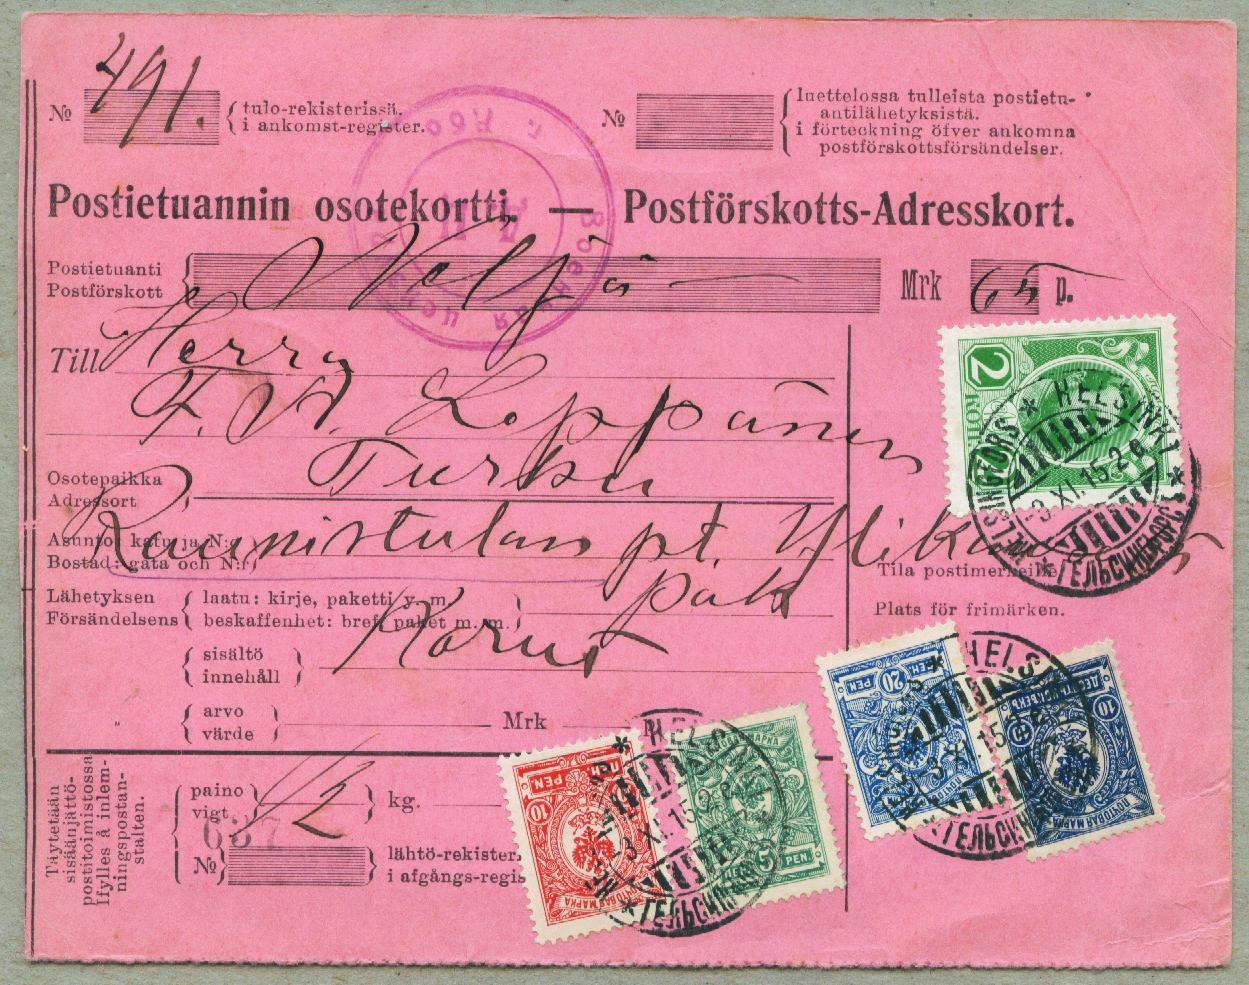 491.
№ tulo-rekisterissä.
i ankomst-register.
№ luettelossa tulleista postietu-
antilähetyksistä.
i förteckning öfver ankomna
postförskottsförsändelser.
Postietuannin osotekortti. — Postförskotts-Adresskort.
Postietuanti
Postförskott
Neljä — Mrk 65 p.
Till Herra
F. A. Loppänen
Turku
Osotepaikka
Adressort
Asunto: katu ja N:
Bostad: gata och N:
Raunistulan pt.
Lähetyksen
Försändelsens
laatu: kirje, paketti y. m.
beskaffenhet: bref, paket m. m.
pak
sisältö
innehåll
arvo
värde
Mrk
Tila postimerkeille.
Plats för frimärken.
Täytetään
sisäänjättö-
postitoimistossa
Ifylles å inlem-
ningspostan-
stalten.
paino
vigt
1/2 kg.
637
№ lähtö-rekister
i afgångs-regis
Военная цензура
2
HELSINKI
HELSINGFORS
3.XI.15.2
ГЕЛЬСИНГФОРСЪ
20 PEN. 20 ПЕН.
10
ПОЧТОВАЯ МАРКА
HELSINKI
3.XI.15
ГЕЛЬСИНГ
10
ПОЧТОВАЯ МАРКА
5 PEN.
HELSINKI
3.XI.15
ГЕЛЬСИНГ